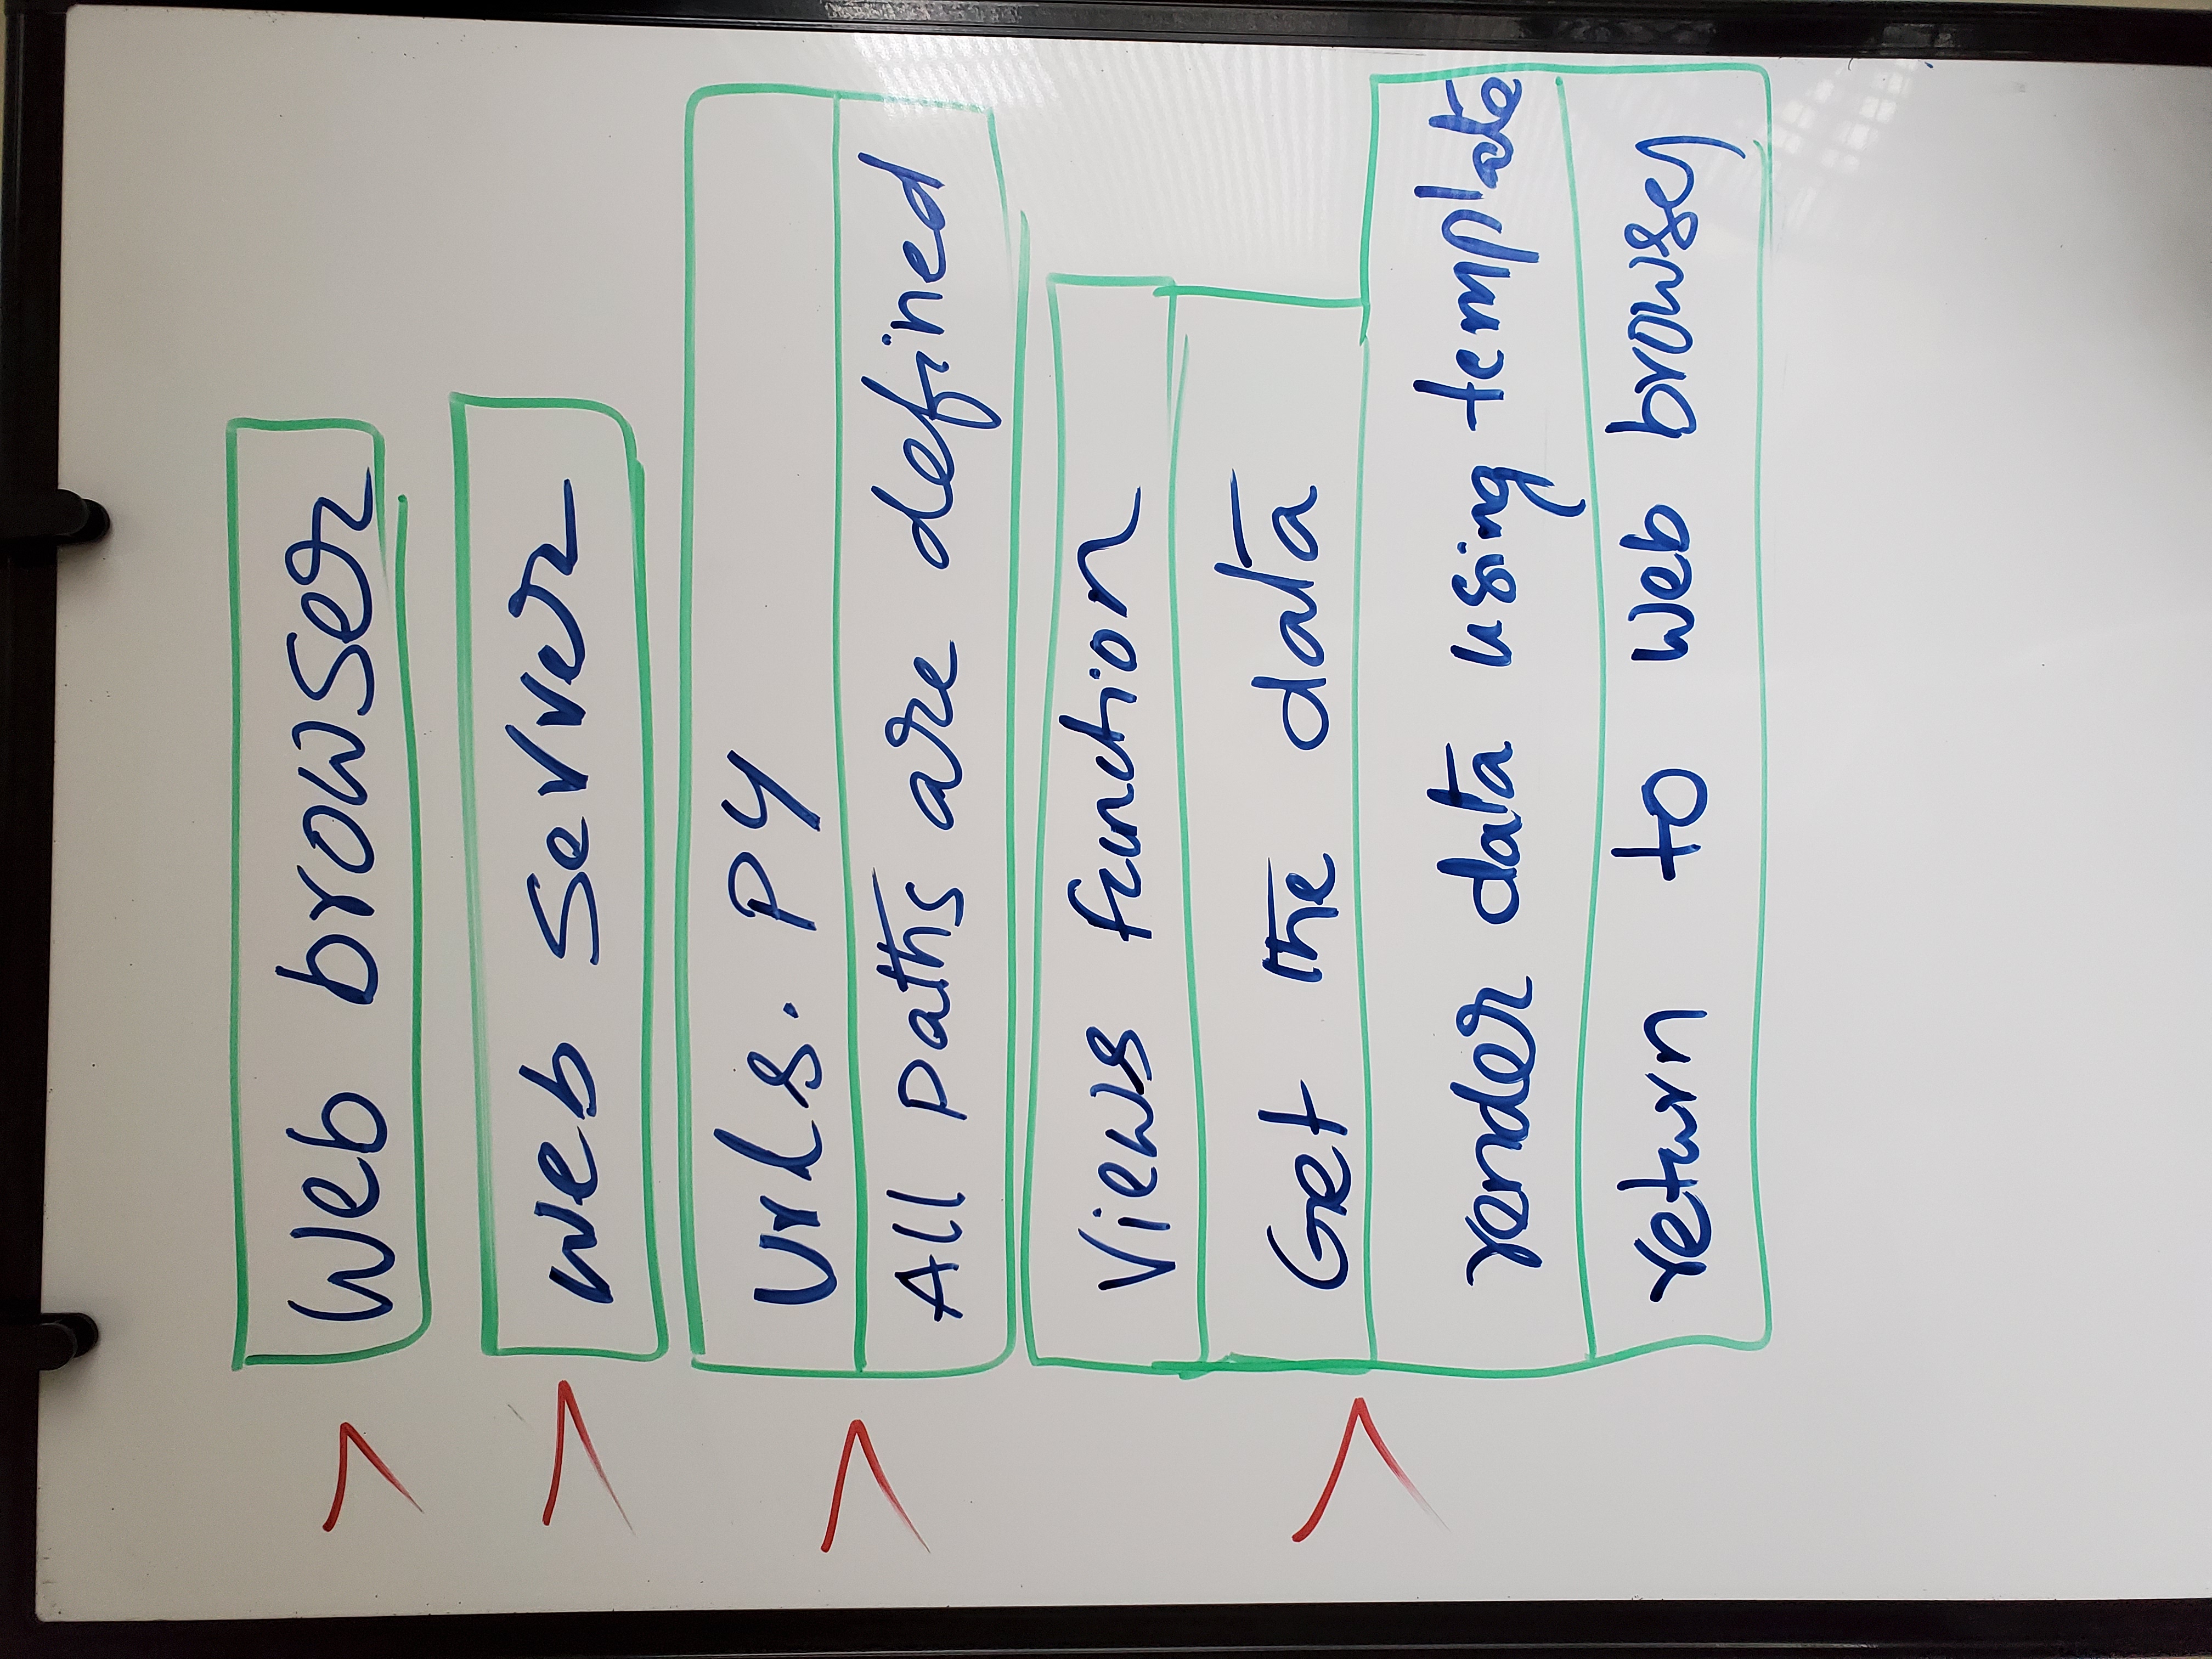 Web browser
web server
Urls. PY
All paths are defined
Views function
Get the data
render data using template
return to web browser